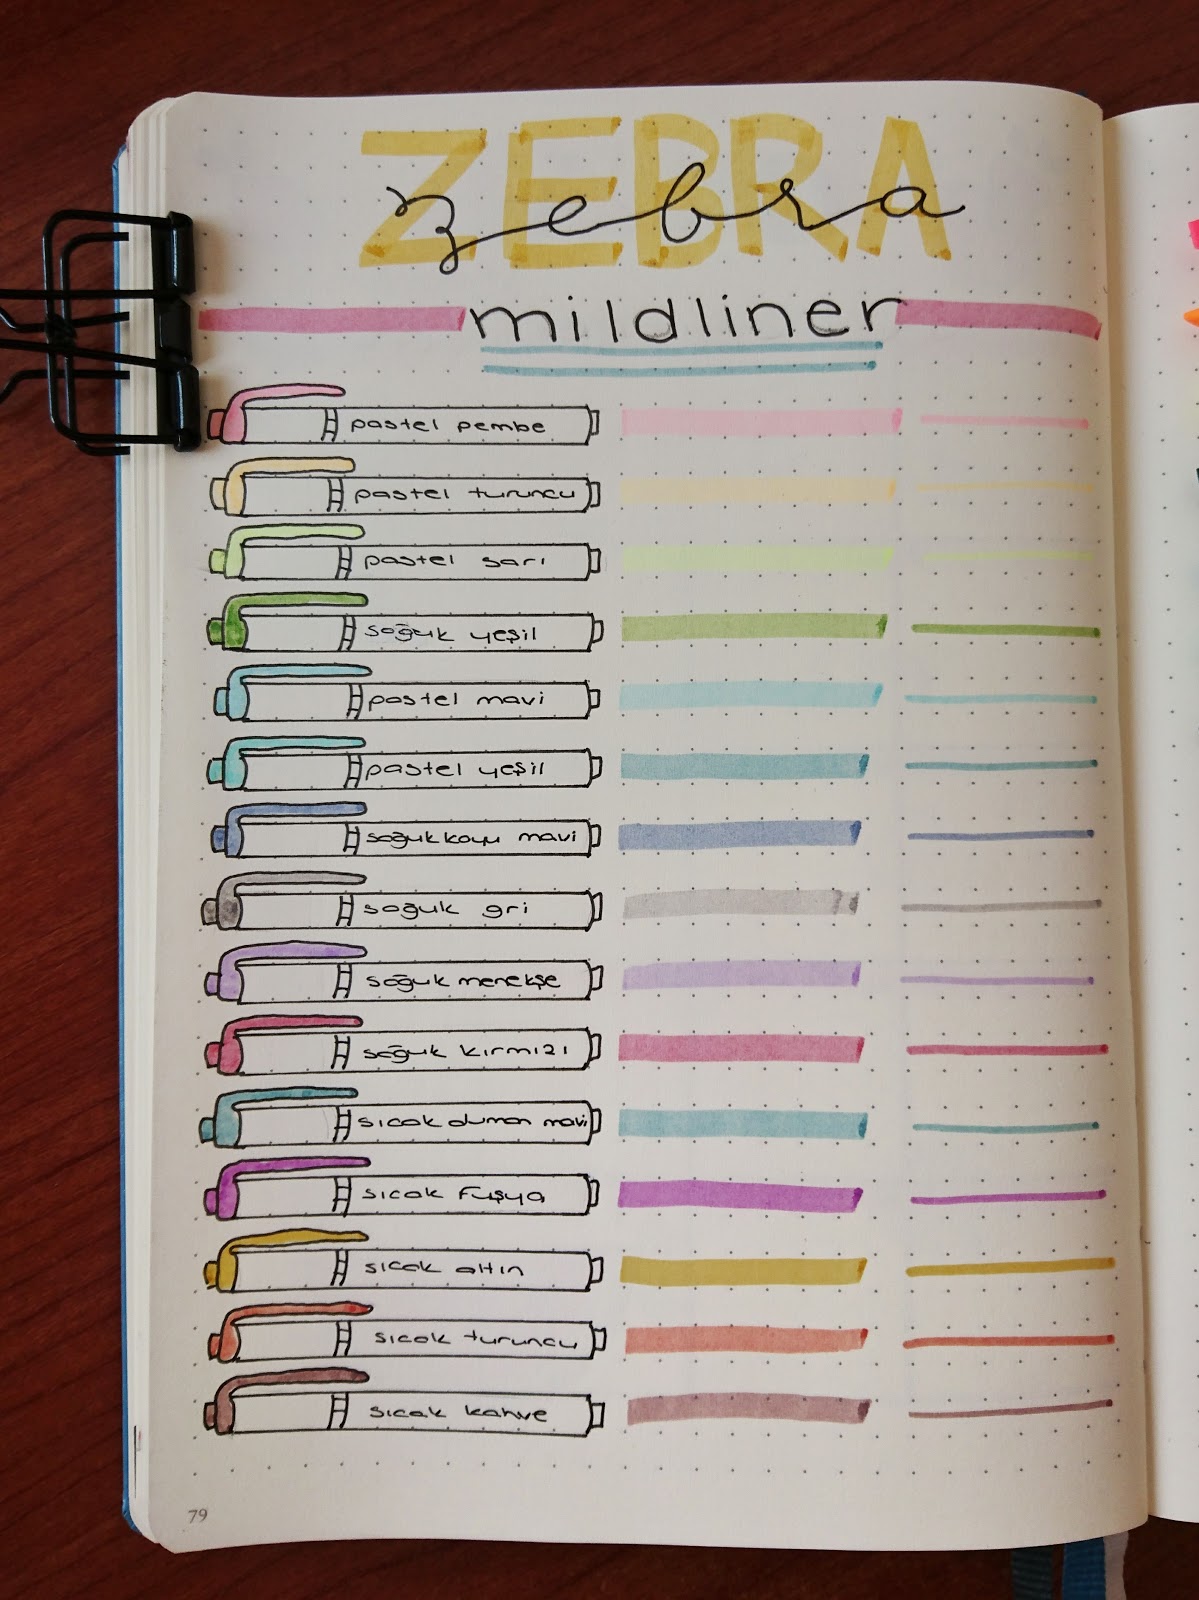 ZEBRA
zebra
mildliner
pastel pembe
pastel turuncu
pastel sarı
soğuk yeşil
pastel mavi
pastel yeşil
soğuk koyu mavi
soğuk gri
soğuk menekşe
soğuk kırmızı
sıcak duman mavi
sıcak fuşya
sıcak altın
sıcak turuncu
sıcak kahve
79